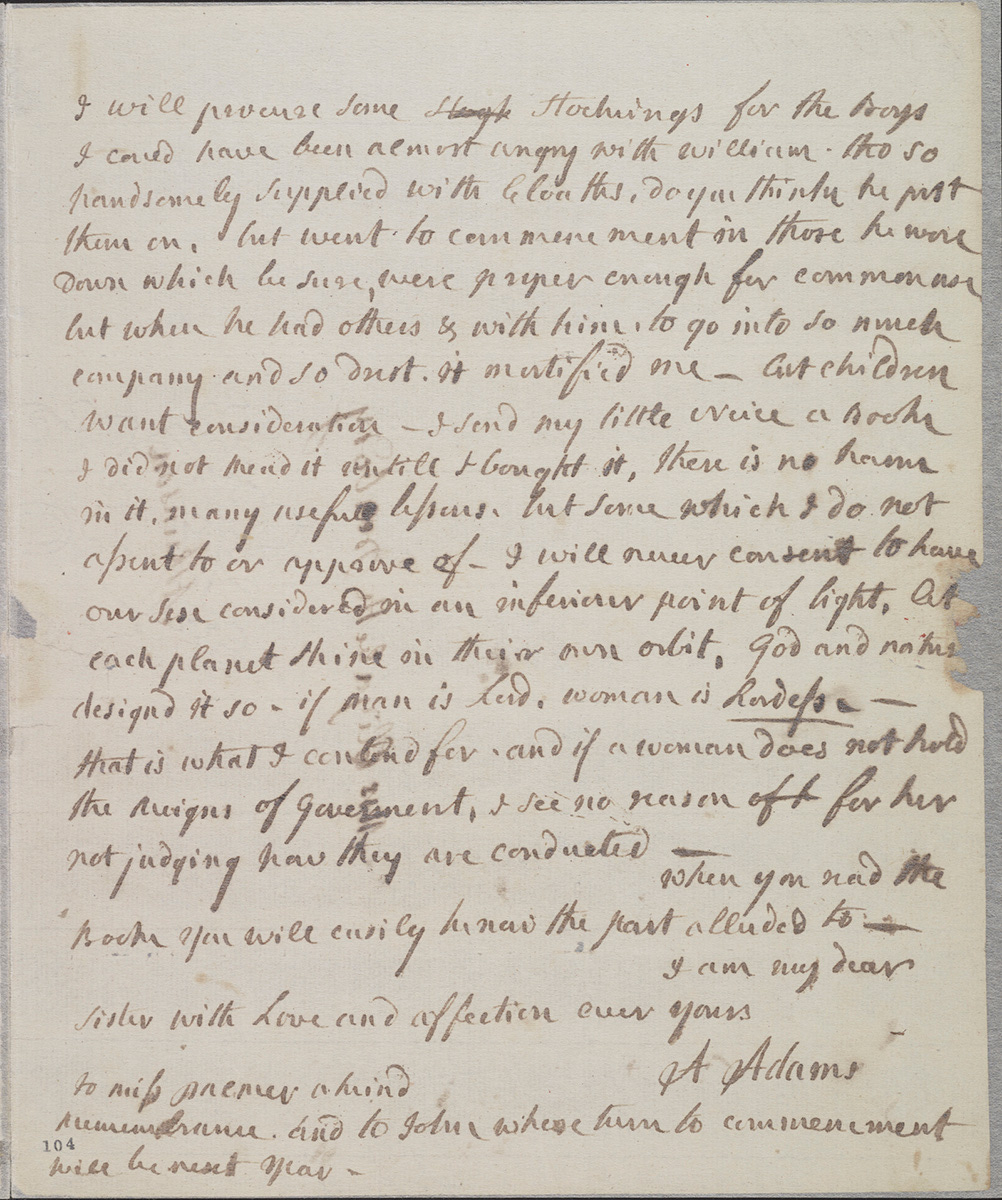 I will procure some Stogk Stockings for the Boys
I could have been almost angry with william. tho so
handsomely supplied with Cloaths, do you think he put
them on, but went to commencment in those he wore
down which be sure, were proper enough for common use
but when he had others & with him, to go into so much
company and so drest. it mortified me — but children
want consideration — I send my little Neice a Book
I did not read it untill I bought it, there is no harm
in it, many usefull lessons. but some which I do not
assent to or approve of — I will never consent to have
our sex considered in an inferiour point of light, Let
each planet shine in their own orbit, God and nature
designd it so — if man is Lord, woman is Lordess — —
that is what I contend for. and if a woman does not hold
the Reigns of Goverment, I see no reason for her
not judging how they are conducted —
when you read the
Book you will easily know the part alluded to —
I am my dear
sister with Love and affection ever yours
A Adams
to miss palmer a kind
rememberance. and to John whose turn to commencement
will be next year —
104